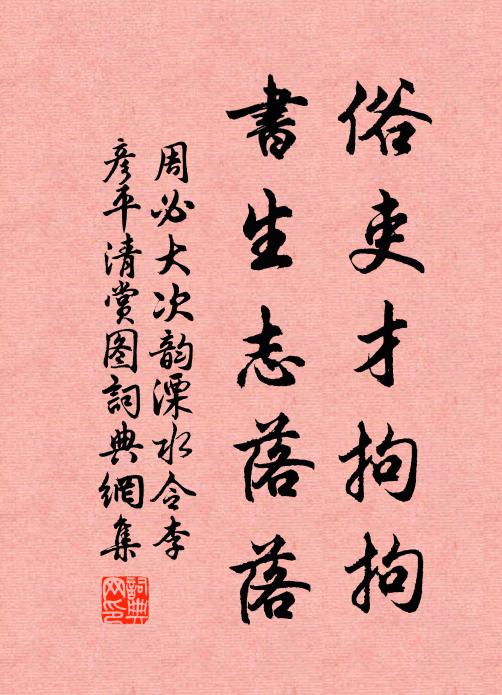 俗吏才拘拘
書生志落落
周必大次韵溧水令李
彦平清赏图詞典網集
詞典网印